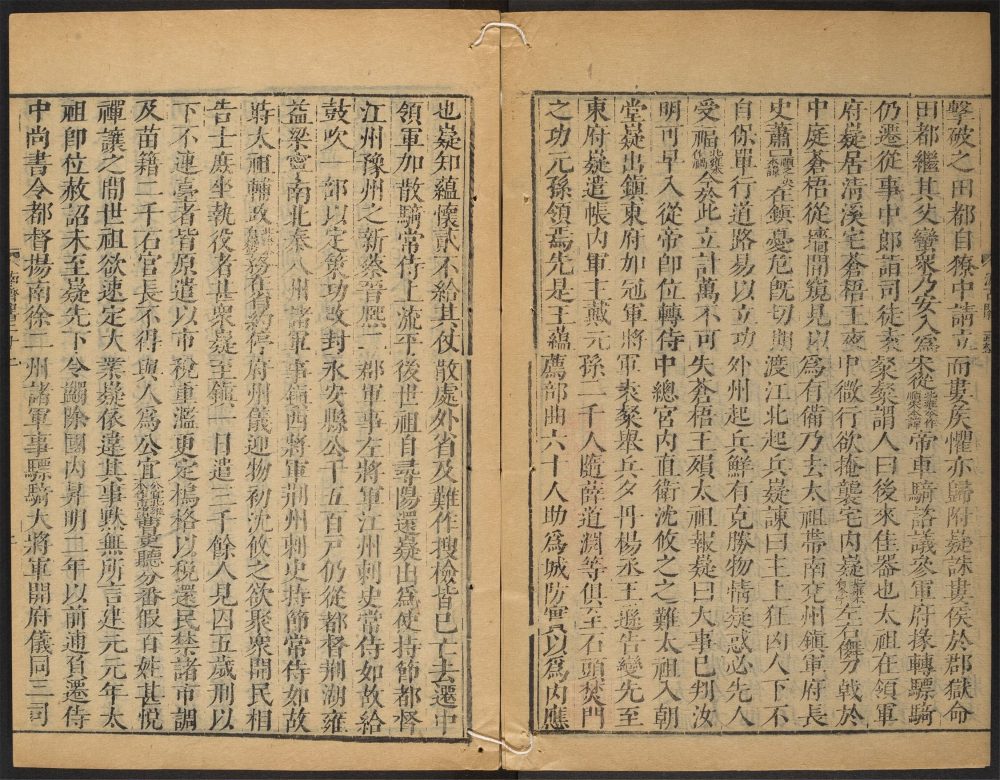 擊破之田都自獠中請立而婁侯懼亦歸附嶷誅婁侯於郡獄命
田都繼其父蠻眾乃安入爲宋從帝車騎諮議參軍府掾轉驃騎
仍遷從事中郎詣司徒袁粲粲謂人曰後來佳器也太祖在領軍
府嶷居淸溪宅蒼梧王夜中微行欲掩襲宅內嶷左右儛刀戟於
中庭蒼梧從墻間窺見以爲有備乃去太祖帶南兗州鎭軍府長
史蕭在鎭憂危旣切期渡江北起兵嶷諫曰主上狂凶人下不
自保單行道路易以立功外州起兵鮮有克勝物情疑惑必先人
受禍今於此立計萬不可失蒼梧王殞太祖報嶷曰大事已判汝
明可早入從帝卽位轉侍中總宮內直衛沈攸之之難太祖入朝
堂嶷出鎭東府加冠軍將軍袁粲舉兵夕丹楊丞王遜告變先至
東府嶷遣帳內軍主戴元孫二千人隨薛道淵等俱至石頭焚門
之功元孫預焉先是王蘊薦部曲六十人助爲城防實以爲內應
也嶷知蘊懷貳不給其仗散處外省及難作搜檢皆已亡去遷中
領軍加散騎常侍上流平後世祖自尋陽還嶷出爲使持節都督
江州豫州之新蔡晉熙二郡軍事左將軍江州刺史常侍如故給
鼓吹一部以定策功改封永安縣公千五百戶仍從都督荊湖雍
益梁寧南北秦八州諸軍事鎭西將軍荊州刺史持節常侍如故
時太祖輔政嶷務在省約停府州儀迎物初沈攸之欲聚眾開民相
告士庶坐執役者甚眾嶷至鎭一日遣三千餘人見囚五歲刑以
下不連臺者皆原遣以市稅重濫更定樢格以稅還民禁諸市調
及苗籍二千石官長不得與人爲公宜當更聽分番假百姓甚悅
禪讓之間世祖欲速定大業嶷依違其事默無所言建元元年太
祖卽位赦詔未至嶷先下令蠲除國內昇明二年以前逋負遷侍
中尚書令都督揚南徐二州諸軍事驃騎大將軍開府儀同三司